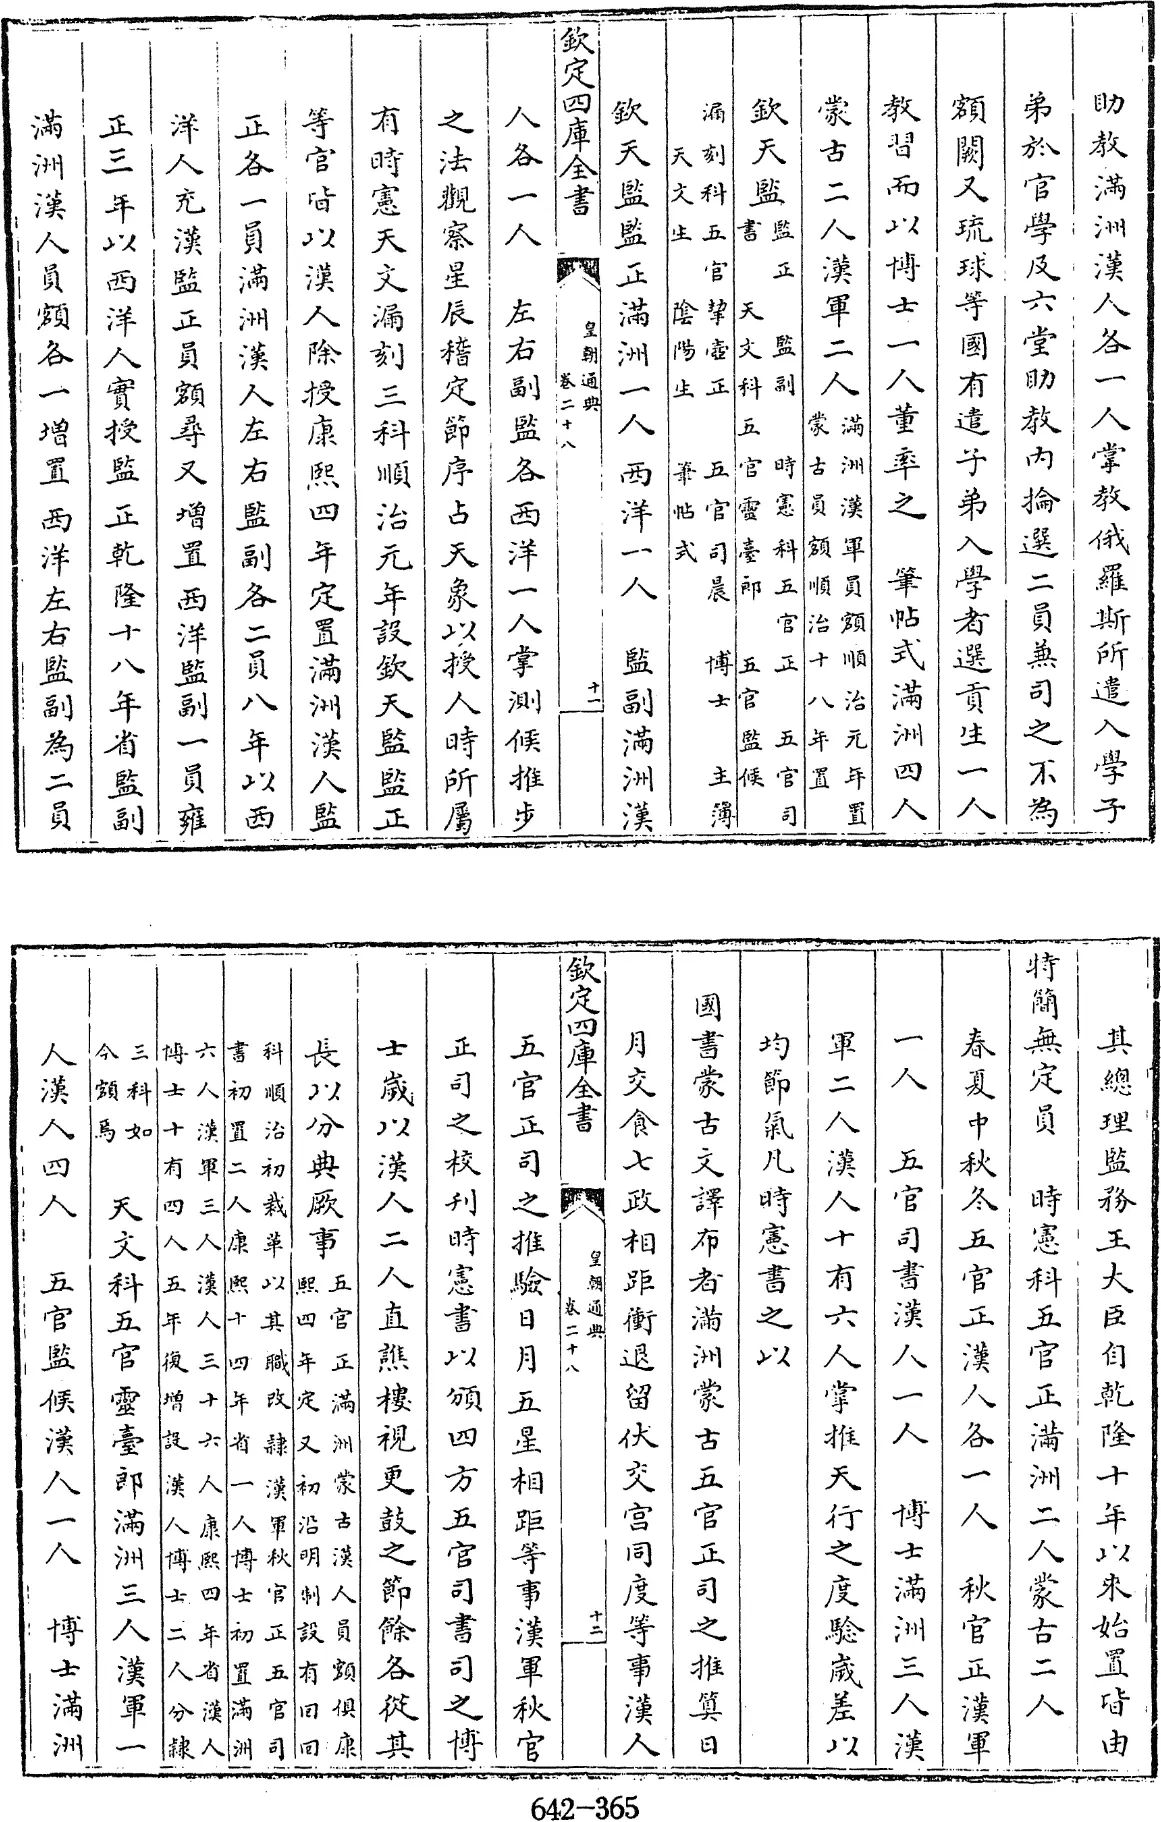 助教滿洲漢人各一人掌教俄羅斯所遣入學子
弟於官學及六堂助教内掄選二員兼司之不為
額闕又琉球等國有遣子弟入學者選貢生一人
教習而以博士一人董率之　筆帖式滿洲四人
蒙古二人漢軍二人滿洲漢軍員額順治元年置
蒙古員額順治十八年置
欽天監監正　監副　時憲科五官正　五官司
書　天文科五官靈臺郎　五官監候
漏刻科五官挈壺正　五官司晨　博士　主簿
天文生　陰陽生　筆帖式
欽天監監正滿洲一人　西洋一人　監副滿洲漢
欽定四庫全書
皇朝通典
卷二十八
十一
人各一人　左右副監各西洋一人掌測候推步
之法觀察星辰稽定節序占天象以授人時所屬
有時憲天文漏刻三科順治元年設欽天監監正
等官皆以漢人除授康熙四年定置滿洲漢人監
正各一員滿洲漢人左右監副各二員八年以西
洋人充漢監正員額尋又增置西洋監副一員雍
正三年以西洋人實授監正乾隆十八年省監副
滿洲漢人員額各一增置西洋左右監副為二員
其總理監務王大臣自乾隆十年以來始置皆由
特簡無定員　時憲科五官正滿洲二人蒙古二人
春夏中秋冬五官正漢人各一人　秋官正漢軍
一人　五官司書漢人一人　博士滿洲三人漢
軍二人漢人十有六人掌推天行之度驗歲差以
均節氣凡時憲書之以
國書蒙古文譯布者滿洲蒙古五官正司之推算日
月交食七政相距衝退留伏交宮同度等事漢人
欽定四庫全書
皇朝通典
卷二十八
十二
五官正司之推驗日月五星相距等事漢軍秋官
正司之校刊時憲書以頒四方五官司書司之博
士歲以漢人二人直譙樓視更鼓之節餘各從其
長以分典厥事五官正滿洲蒙古漢人員額俱康
熙四年定又初沿明制設有回回
科順治初裁革以其職改隸漢軍秋官正五官司
書初置二人康熙十四年省一人博士初置滿洲
六人漢軍三人漢人三十六人康熙四年省漢人
博士十有四人五年復增設漢人博士二人分隸
三科如
今額焉　天文科五官靈臺郎滿洲三人漢軍一
人漢人四人　五官監候漢人一人　博士滿洲
642-365